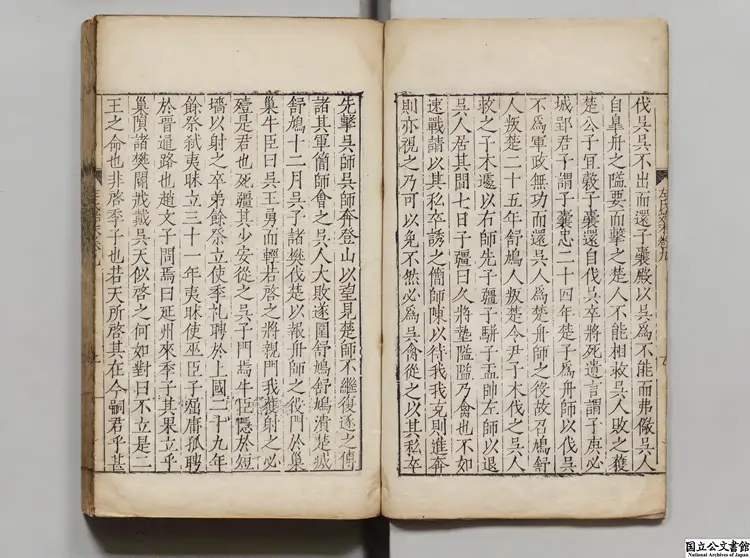 伐吳吳不出而還子囊殿以吳爲不能而弗儆吳人
自皐舟之隘要而擊之楚人不能相救吳人敗之獲
楚公子冝穀子囊還自伐吳卒將死遺言謂子庚必
城郢君子謂子囊忠二十四年楚子爲舟師以伐吳
不爲軍政無功而還吳人爲楚舟師之役故召鳩舒
人叛楚二十五年舒鳩人叛楚令尹子木伐之吳人
救之子木遽以右師先子疆子騈子盂帥左師以退
吳人居其間七日子疆曰久將墊隘隘乃禽也不如
速戰請以其私卒誘之簡師陳以待我我克則進奔
則亦視之乃可以免不然必爲吳禽從之以其私卒
先擊吳師吳師奔登山以望見楚師不繼復逐之傅
諸其軍簡師會之吳人大敗遂圍舒鳩舒鳩潰楚滅
舒鳩十二月吳子諸樊伐楚以報舟師之役門於巢
巢牛臣曰吳王勇而輕若啓之將親門我獲射之必
殪是君也死疆其少安從之吳子門焉牛臣隱於短
墻以射之卒弟餘祭立使季札聘於上國二十九年
餘祭弑夷昧立三十一年夷昧使巫臣子屈庸狐聘
於晉通路也趙文子問焉曰延州來季子其果立乎
巢隕諸樊閽戕戴吳天似啓之何如對曰不立是二
王之命也非啓季子也若天所啓其在今嗣君乎甚
国立公文書館
National Archives of Japan